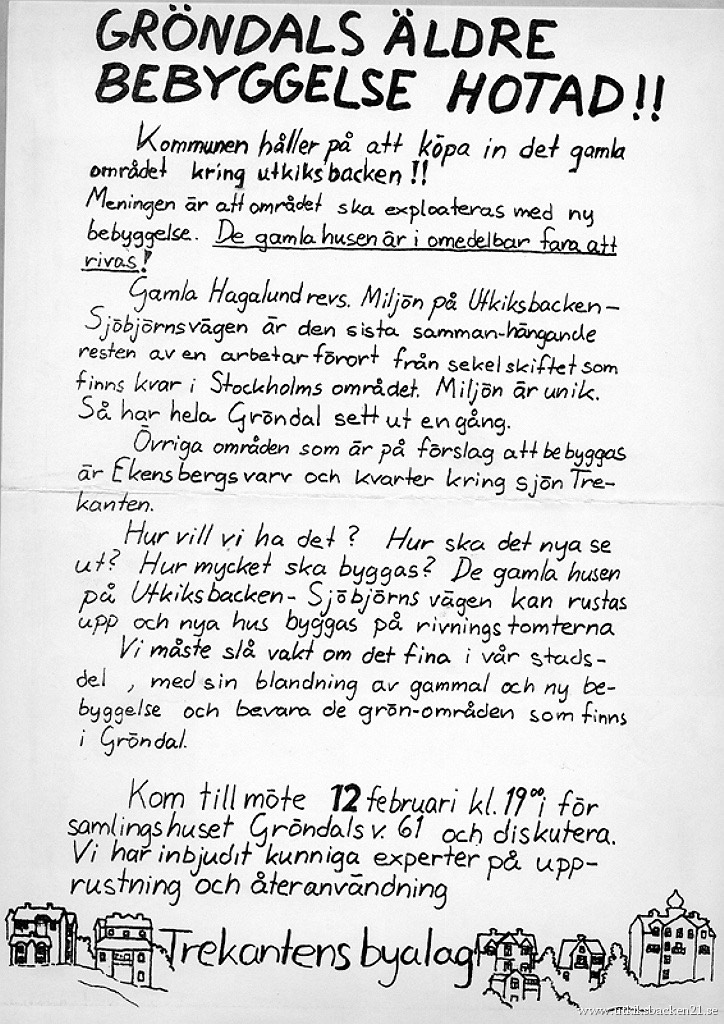 GRÖNDALS ÄLDRE
BEBYGGELSE HOTAD!!
Kommunen håller på att köpa in det gamla
området kring utkiksbacken!!
Meningen är att området ska exploateras med ny
bebyggelse. De gamla husen är i omedelbar fara att
rivas!
Gamla Hagalund revs. Miljön på Utkiksbacken-
Sjöbjörnsvägen är den sista samman-hängande
resten av en arbetarförort från sekelskiftet som
finns kvar i Stockholms området. Miljön är unik.
Så har hela Gröndal sett ut en gång.
Övriga områden som är på förslag att bebyggas
är Ekensbergs varv och kvarter kring sjön Tre-
kanten.
Hur vill vi ha det? Hur ska det nya se
ut? Hur mycket ska byggas? De gamla husen
på Utkiksbacken- Sjöbjörns vägen kan rustas
upp och nya hus byggas på rivningstomterna
Vi måste slå vakt om det fina i vår stads-
del , med sin blandning av gammal och ny be-
byggelse och bevara de grön-områden som finns
i Gröndal.
Kom till möte 12 februari kl. 19⁰⁰ i för
samlingshuset Gröndals v. 61 och diskutera.
Vi har inbjudit kunniga experter på upp-
rustning och återanvändning
Trekantens byalag
www.utkiksbacken21.se